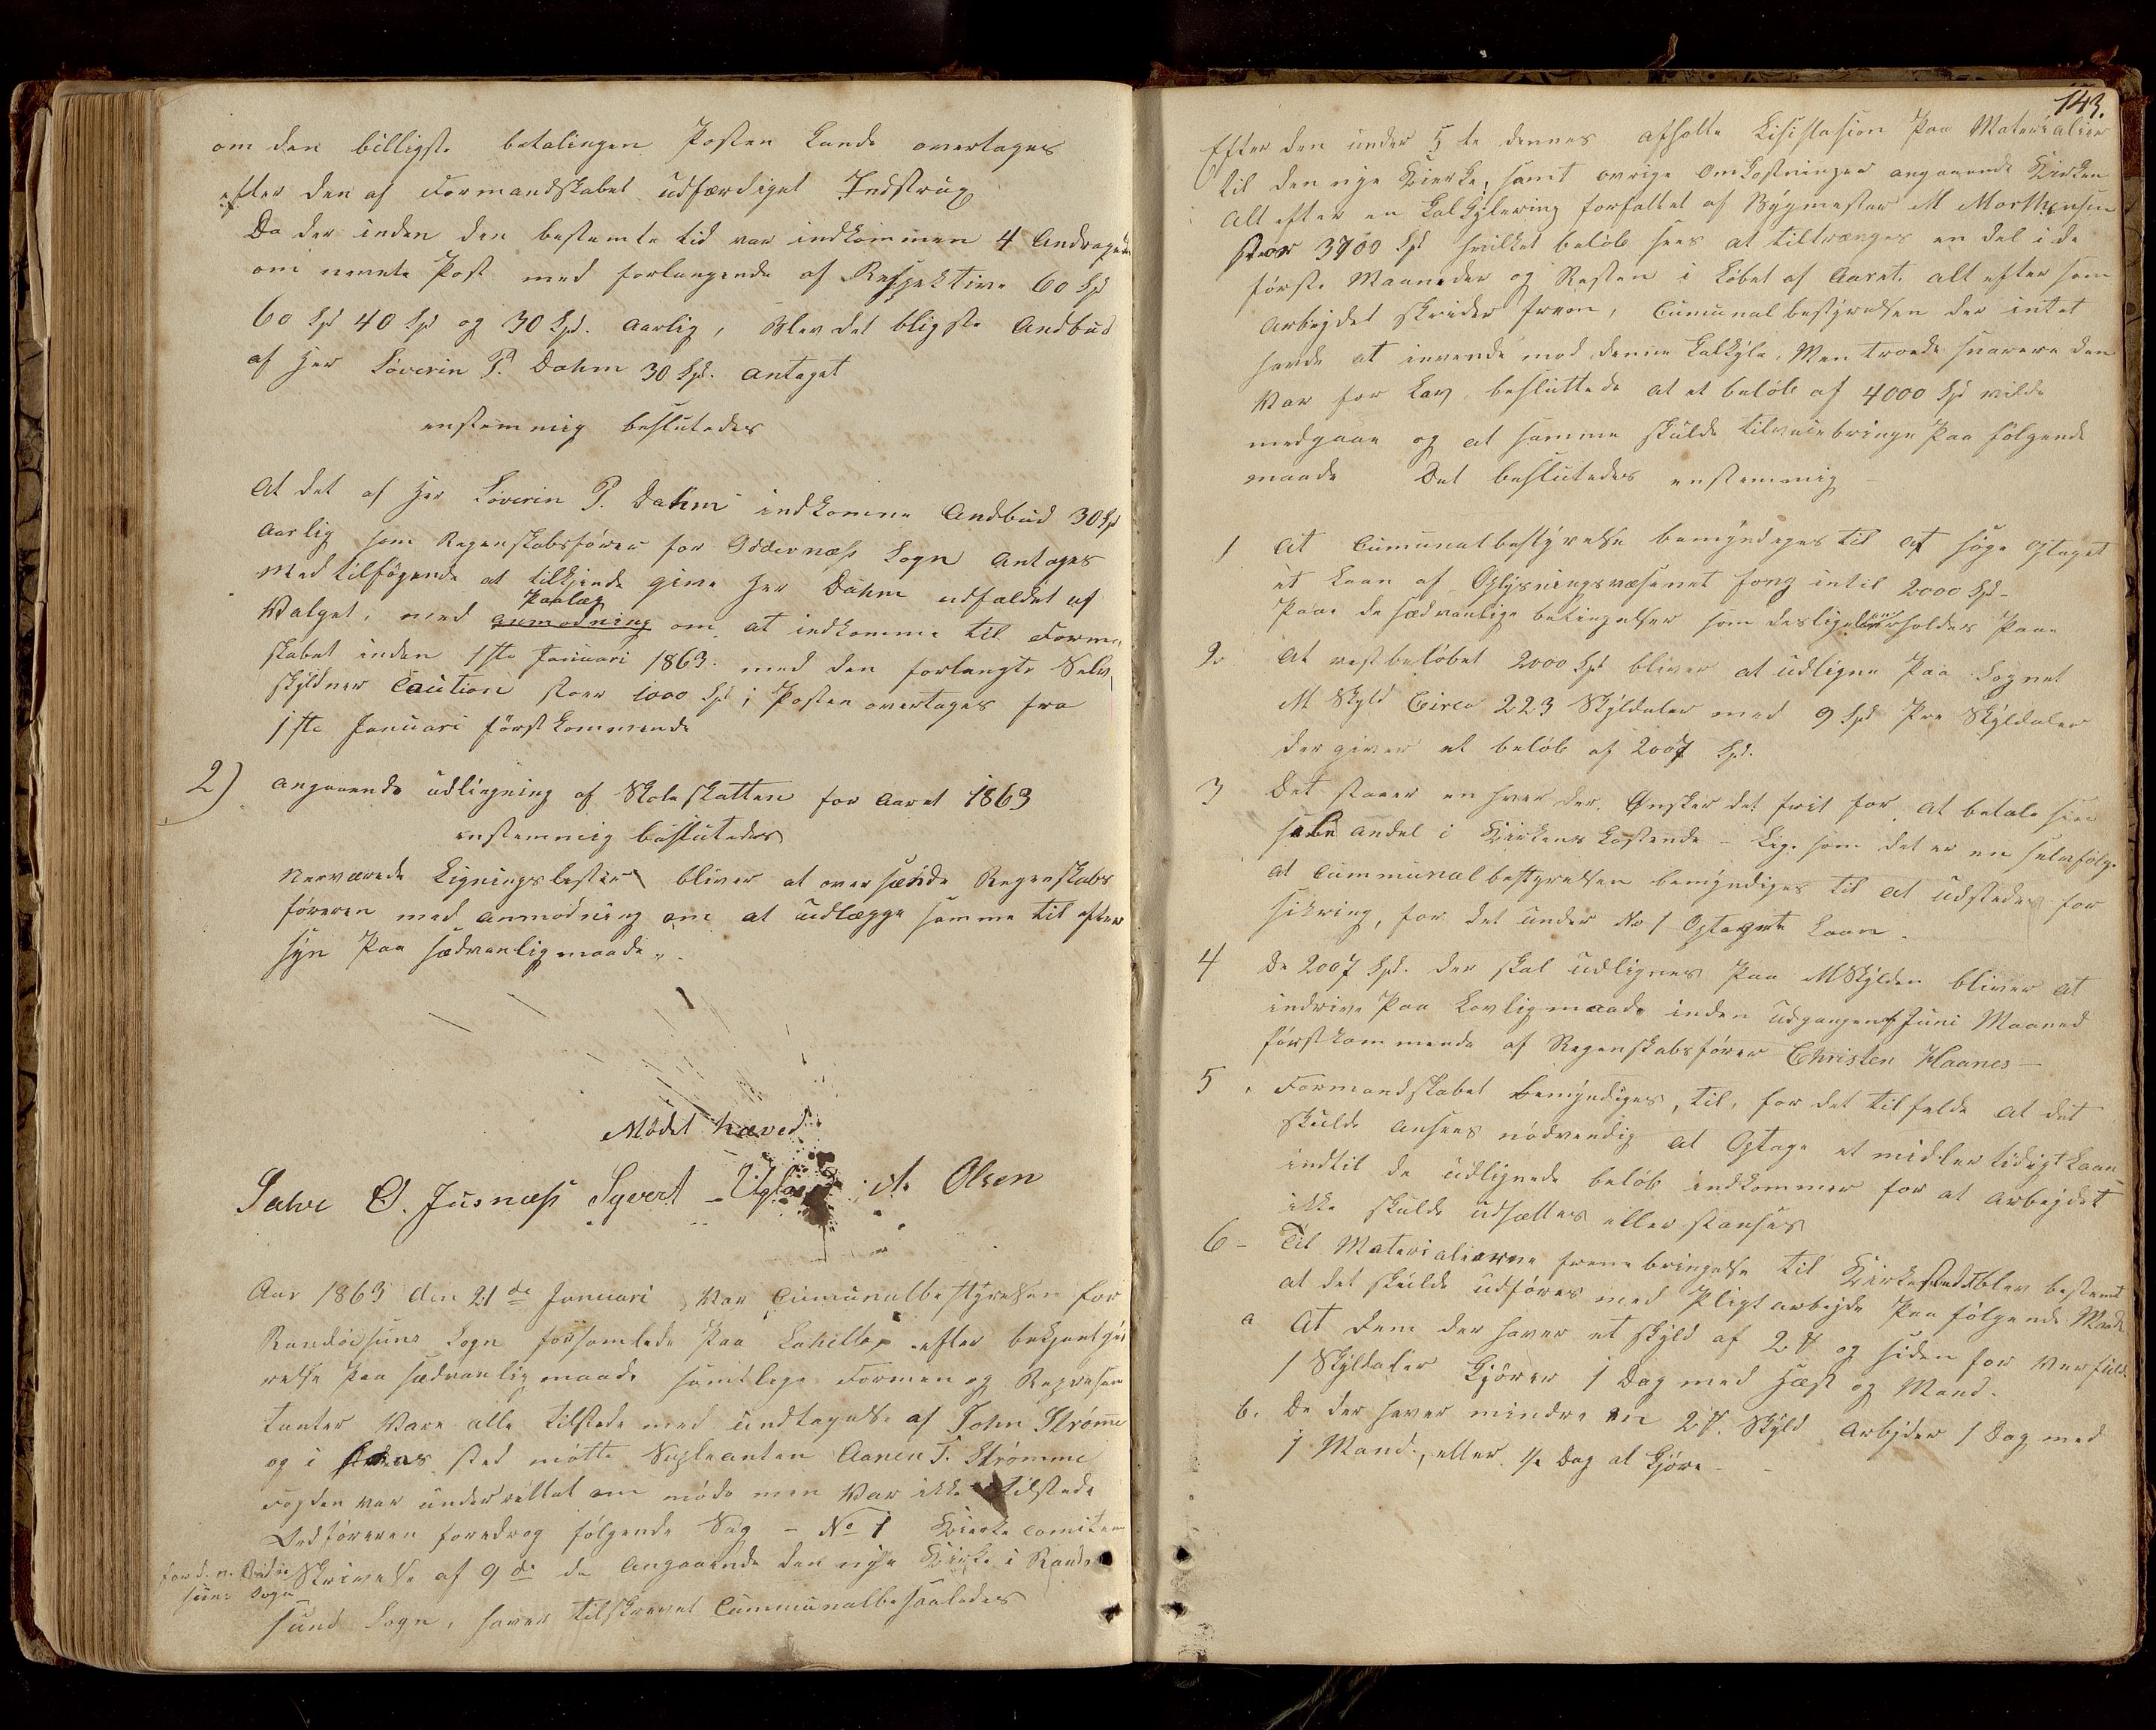 om den billigste betalingen Posten kunde overtages
efter den af Formandskabet udfærdiget Instrux
Da der inden den bestemte tid var indkommen 4 Andragender
om nevnte Post med forlangende af Respektive 60 Spd
60 Spd 40 Spd og 30 Spd. aarlig, Blev det bligste Andbud
af Her Söverin P. Dahm 30 Spd. antaget
enstemmig beslutedes
At det af Her Söverin P. Dahm indkomne Andbud 30 Spd
aarlig som Regenskabsfører for Oddernæss Sogn antages
Med tilföyende at tilkjende give Her Dahm udfaldet af
Paalæg
Valget, med anmodning om at indkomme til Formand
skabet inden 1ste Januari 1863. med den forlangte Selv
skyldner Caution stor 1000 Spd; Posten overtages fra
1ste Januari förstkommende
2) angaaende udligning af Skoleskatten for Aaret 1863
enstemmig beslutedes
nerværede Ligningslester bliver at oversænde Regenskabs
föreren med anmodning om at udlægge samme til efter
syn Paa sædvanlig maade.
Mödet hæved
Salve O. Jusnæss Syvert Ugland A. Olsen
Aar 1863 den 21de Januari Var Cumunalbestyrelsen for
Randösuns Sogn forsamlede Paa Lahelle efter bekjentgjö
relse Paa sædvanlig maade samtlege Formen og Represen
tanter Vare alle tilstede med undtagelse af John Strømme
og i sted mötte Supleanten Aanen T. Strömme
Fogden var underrettet om möde men Var ikke tilstede
Ordföreren foredrog fölgende Sag - No 1 Kierke Comiteen
for d. n. Randö
suns Sogn
Skrivelse af 9de ds Angaaende den nye Kirke i Randö
sund Sogn, haver tilskrevet Cummunalbe saaledes
143.
Efter den under 5te dennes afholte Lisistasion Paa Materialier
til den nye Kierke, samt ovrige Omkostninger angaaende Kirken
Alt efter en Kalkylering forfattet af Bygmester M Morthensen
stor 3700 Spd hvilket belöb sees at tiltrænges en del i de
förste Maaneder og Resten i Löbet af Aaret, alt efter som
Arbejdet skrider frem, Cumunalbestyrelsen der intet
havde at invende mod denne Kalkyle, Men troede snarere den
Var for Lav, besluttede at et belöb af 4000 Spd vilde
medgaae og at samme skulde tilveiebringe Paa fölgende
maade Det beslutedes enstemmig -
1 At Cumunalbestyrelse bemyndeges til at söge optaget
et Laan af Oplysningsvæsenet forg intil 2000 Spd -
Paa de sædvanlige betingelser som desligelaan erholdes Paa
2. At restbelöbet 2000 Spd bliver at udligne Paa Sognet
M Skyld Circa 223 Skyldaler med 9 Spd Pre Skyldaler
der giver et belöb af 2007 Spd.
3 Det staaer en hver der Ønsker det frit for, at betale sin
hele andel i Kirkens Kostende - Lige som det er en selvfølge
at Cummunalbestyrelsen bemyndiges til at udstede for
sikring, for det under No 1 Optagete Laan.
4 De 2007 Spd. der skal udlignes Paa MSkylden bliver at
indrive Paa Lovlig maade inden udgangen af Juni Maaned
förstkommende af Regenskabsfører Christen Haanes -
5. Formandskabet bemyndiges, til, for det tilfelde at det
skulde ansees nödvendig at Optage et midlertidigt Laan
indtil de udlignede belöb indkommer for at arbejdet
ikke skulde udsættes eller stanses
6 - Til Materialierne frembringelse til Kirkestedet blev bestemt
at det skulde udföres med Pligtarbejde Paa fölgende Maade
a At dem der haver et skyld af 2 # og siden for Ver fuld
1 Skyldaler Kjörer 1 Dag med Hæst og Mand.
b. De der haver mindre en 2 #. Skyld Arbejder 1 Dag med
1 Mand, eller 1/2 Dag at Kjöre -